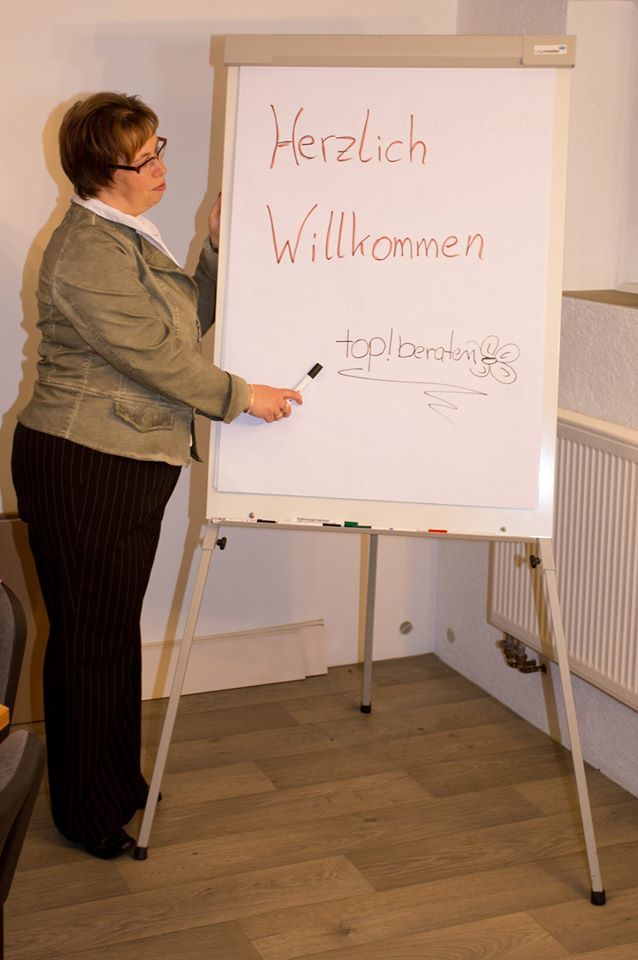 Herzlich
Willkommen
top! beraten